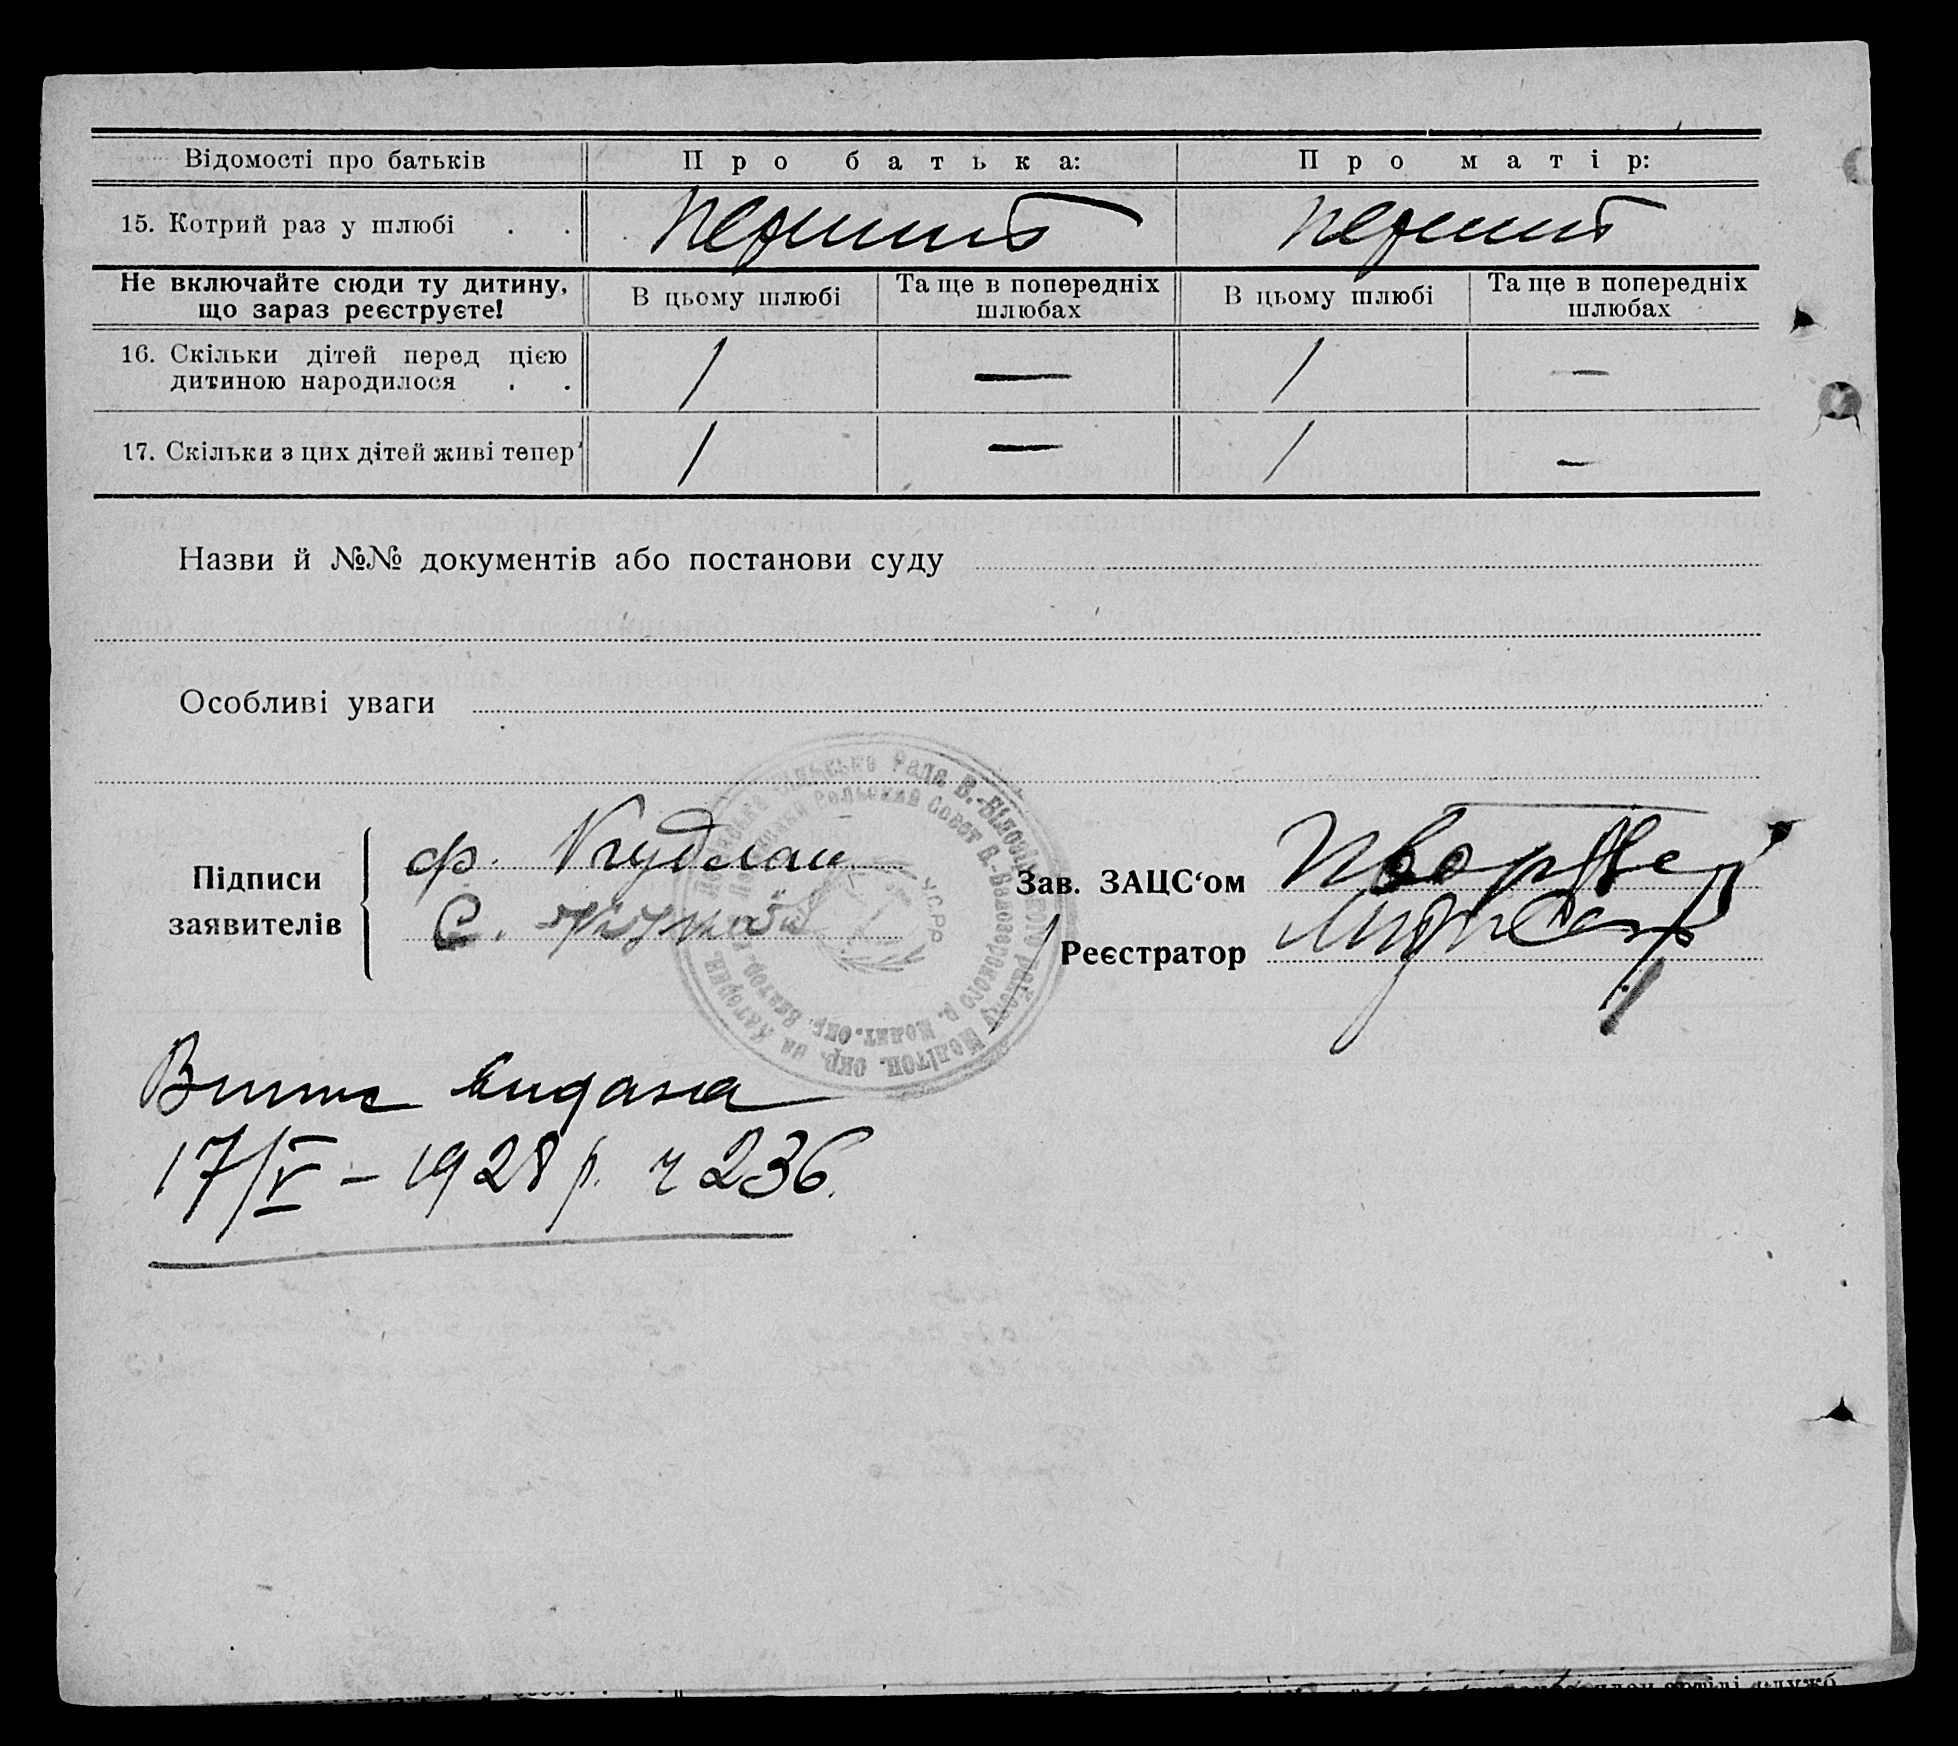 Відомості про батьків Про батька: Про матір:
15. Котрий раз у шлюбі . . перший перший
Не включайте сюди ту дитину, що зараз реєструєте! В цьому шлюбі Та ще в попередніх шлюбах В цьому шлюбі Та ще в попередніх шлюбах
16. Скільки дітей перед цією
дитиною народилося . . 1 — 1 —
17. Скільки з цих дітей живі тепер 1 — 1 —
Назви й №№ документів або постанови суду
Особливі уваги
Підписи
заявителів
ф. Кудлай
С.
Зав. ЗАЦС‘ом
Реєстратор
Рада В.-Білозірського району Мелітоп. окр. на Катерин.
Сельский Совет В.-Белозерского р. Мелит. окр.
УСРР
Випис видана
17/V – 1928 р. ч 236.